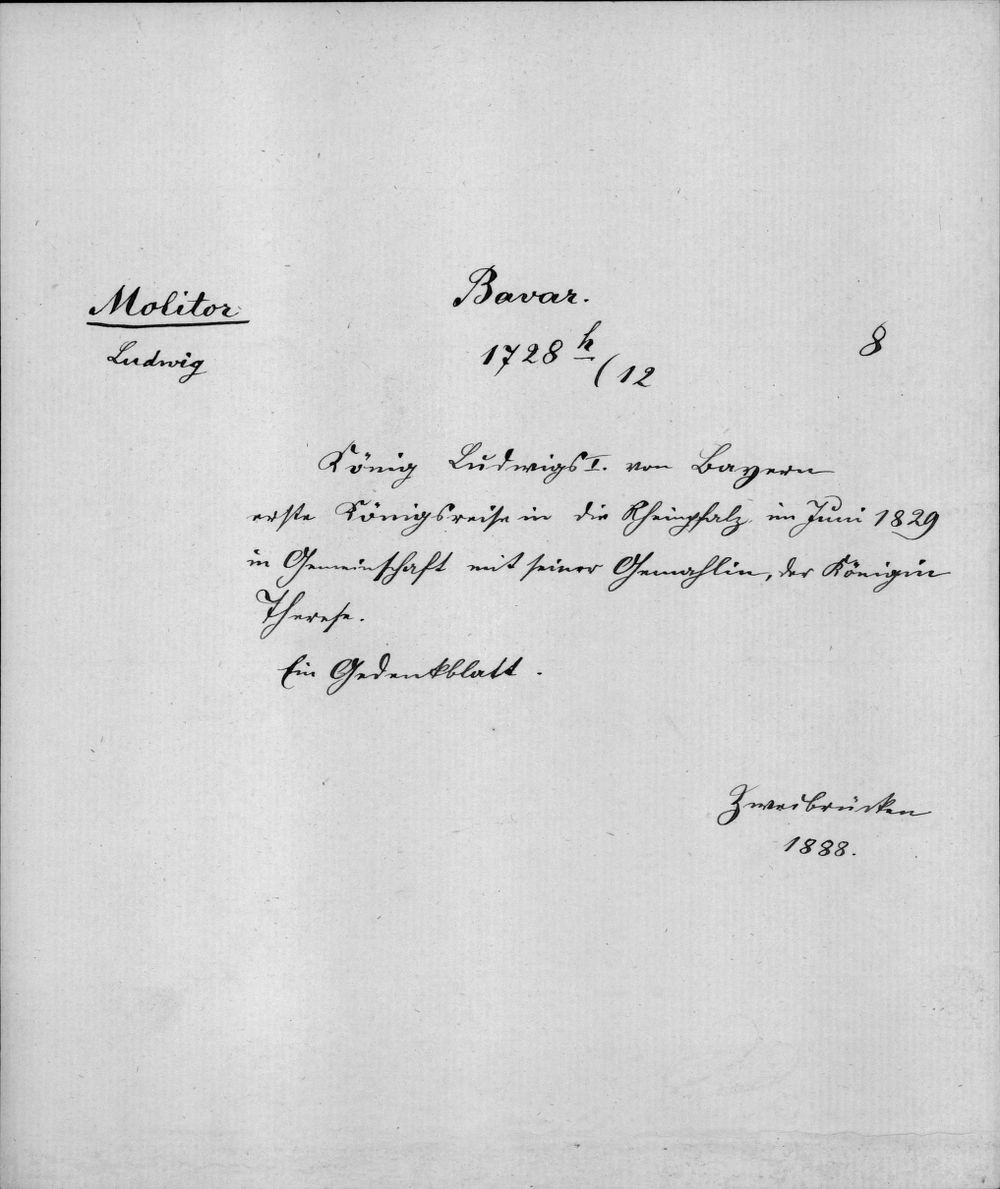 Molitor
Ludwig
Bavar.
1728 h
(12
8
König Ludwigs I. von Bayern
erste Königsreise in die Rheinpfalz im Juni 1829
in Gemeinschaft mit seiner Gemahlin, der Königin
Therese.
Ein Gedenkblatt.
Zweibrücken
1888.